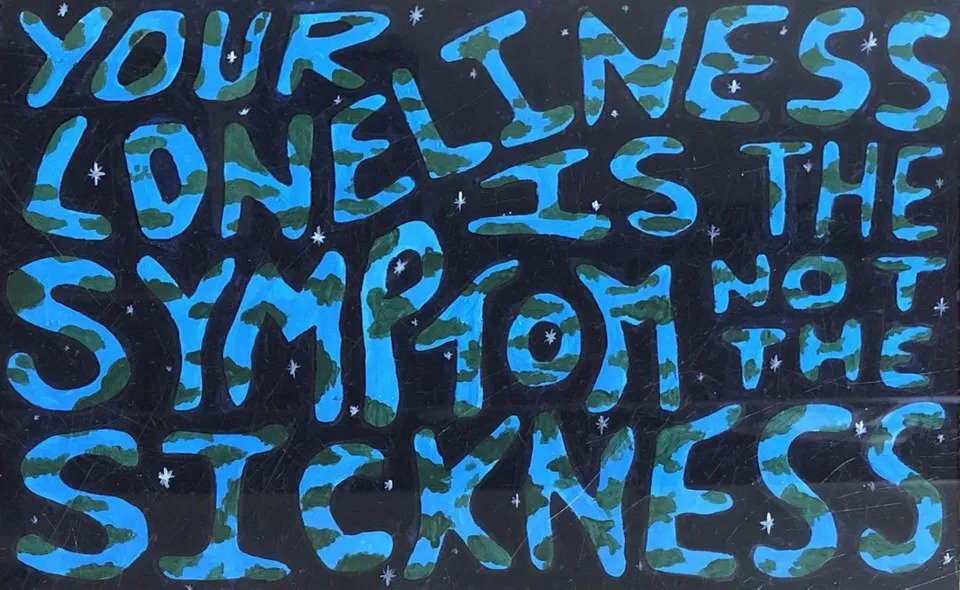 YOUR LONELINESS
IS THE
SYMPTOM NOT
THE
SICKNESS